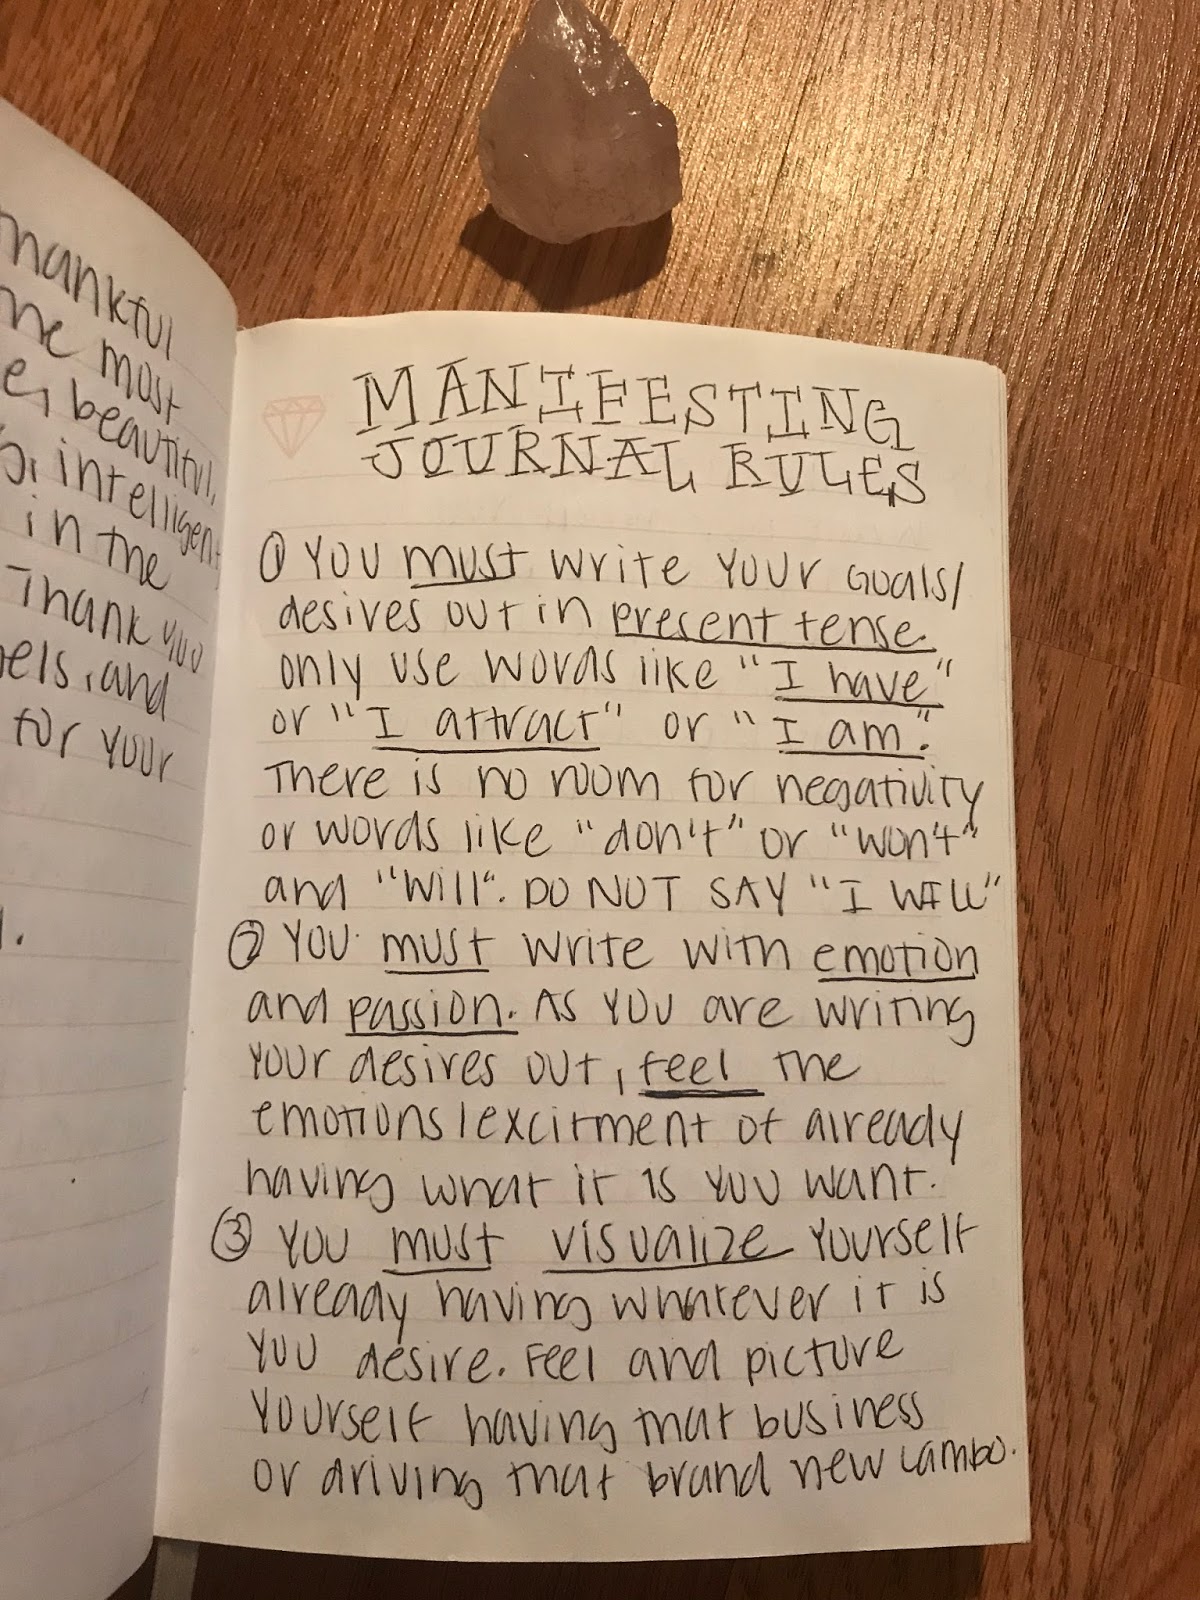 thankful
most
beautiful,
intelligent
in the
Thank you
and
for your
MANIFESTING
JOURNAL RULES
① YOU must write your goals/
desires out in present tense.
only use words like "I have"
or "I attract" or "I am".
There is no room for negativity
or words like "don't" or "won't"
and "will". DO NOT SAY "I WILL"
② YOU must write with emotion
and passion. As you are writing
your desires out, feel the
emotions/excitment of already
having what it is you want.
③ YOU must visualize yourself
already having whatever it is
you desire. Feel and picture
yourself having that business
or driving that brand new Lambo.